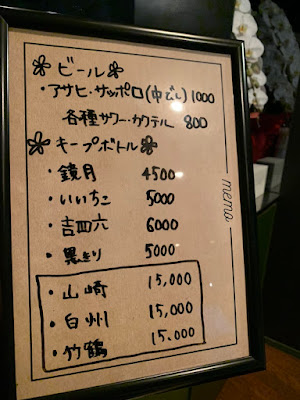 ビール
・アサヒ・サッポロ(中びん) 1000
各種サワー・カクテル 800
キープボトル
・鏡月 4500
・いいちこ 5000
・吉四六 6000
・黒きり 5000
・山崎 15,000
・白州 15,000
・竹鶴 15,000
memo